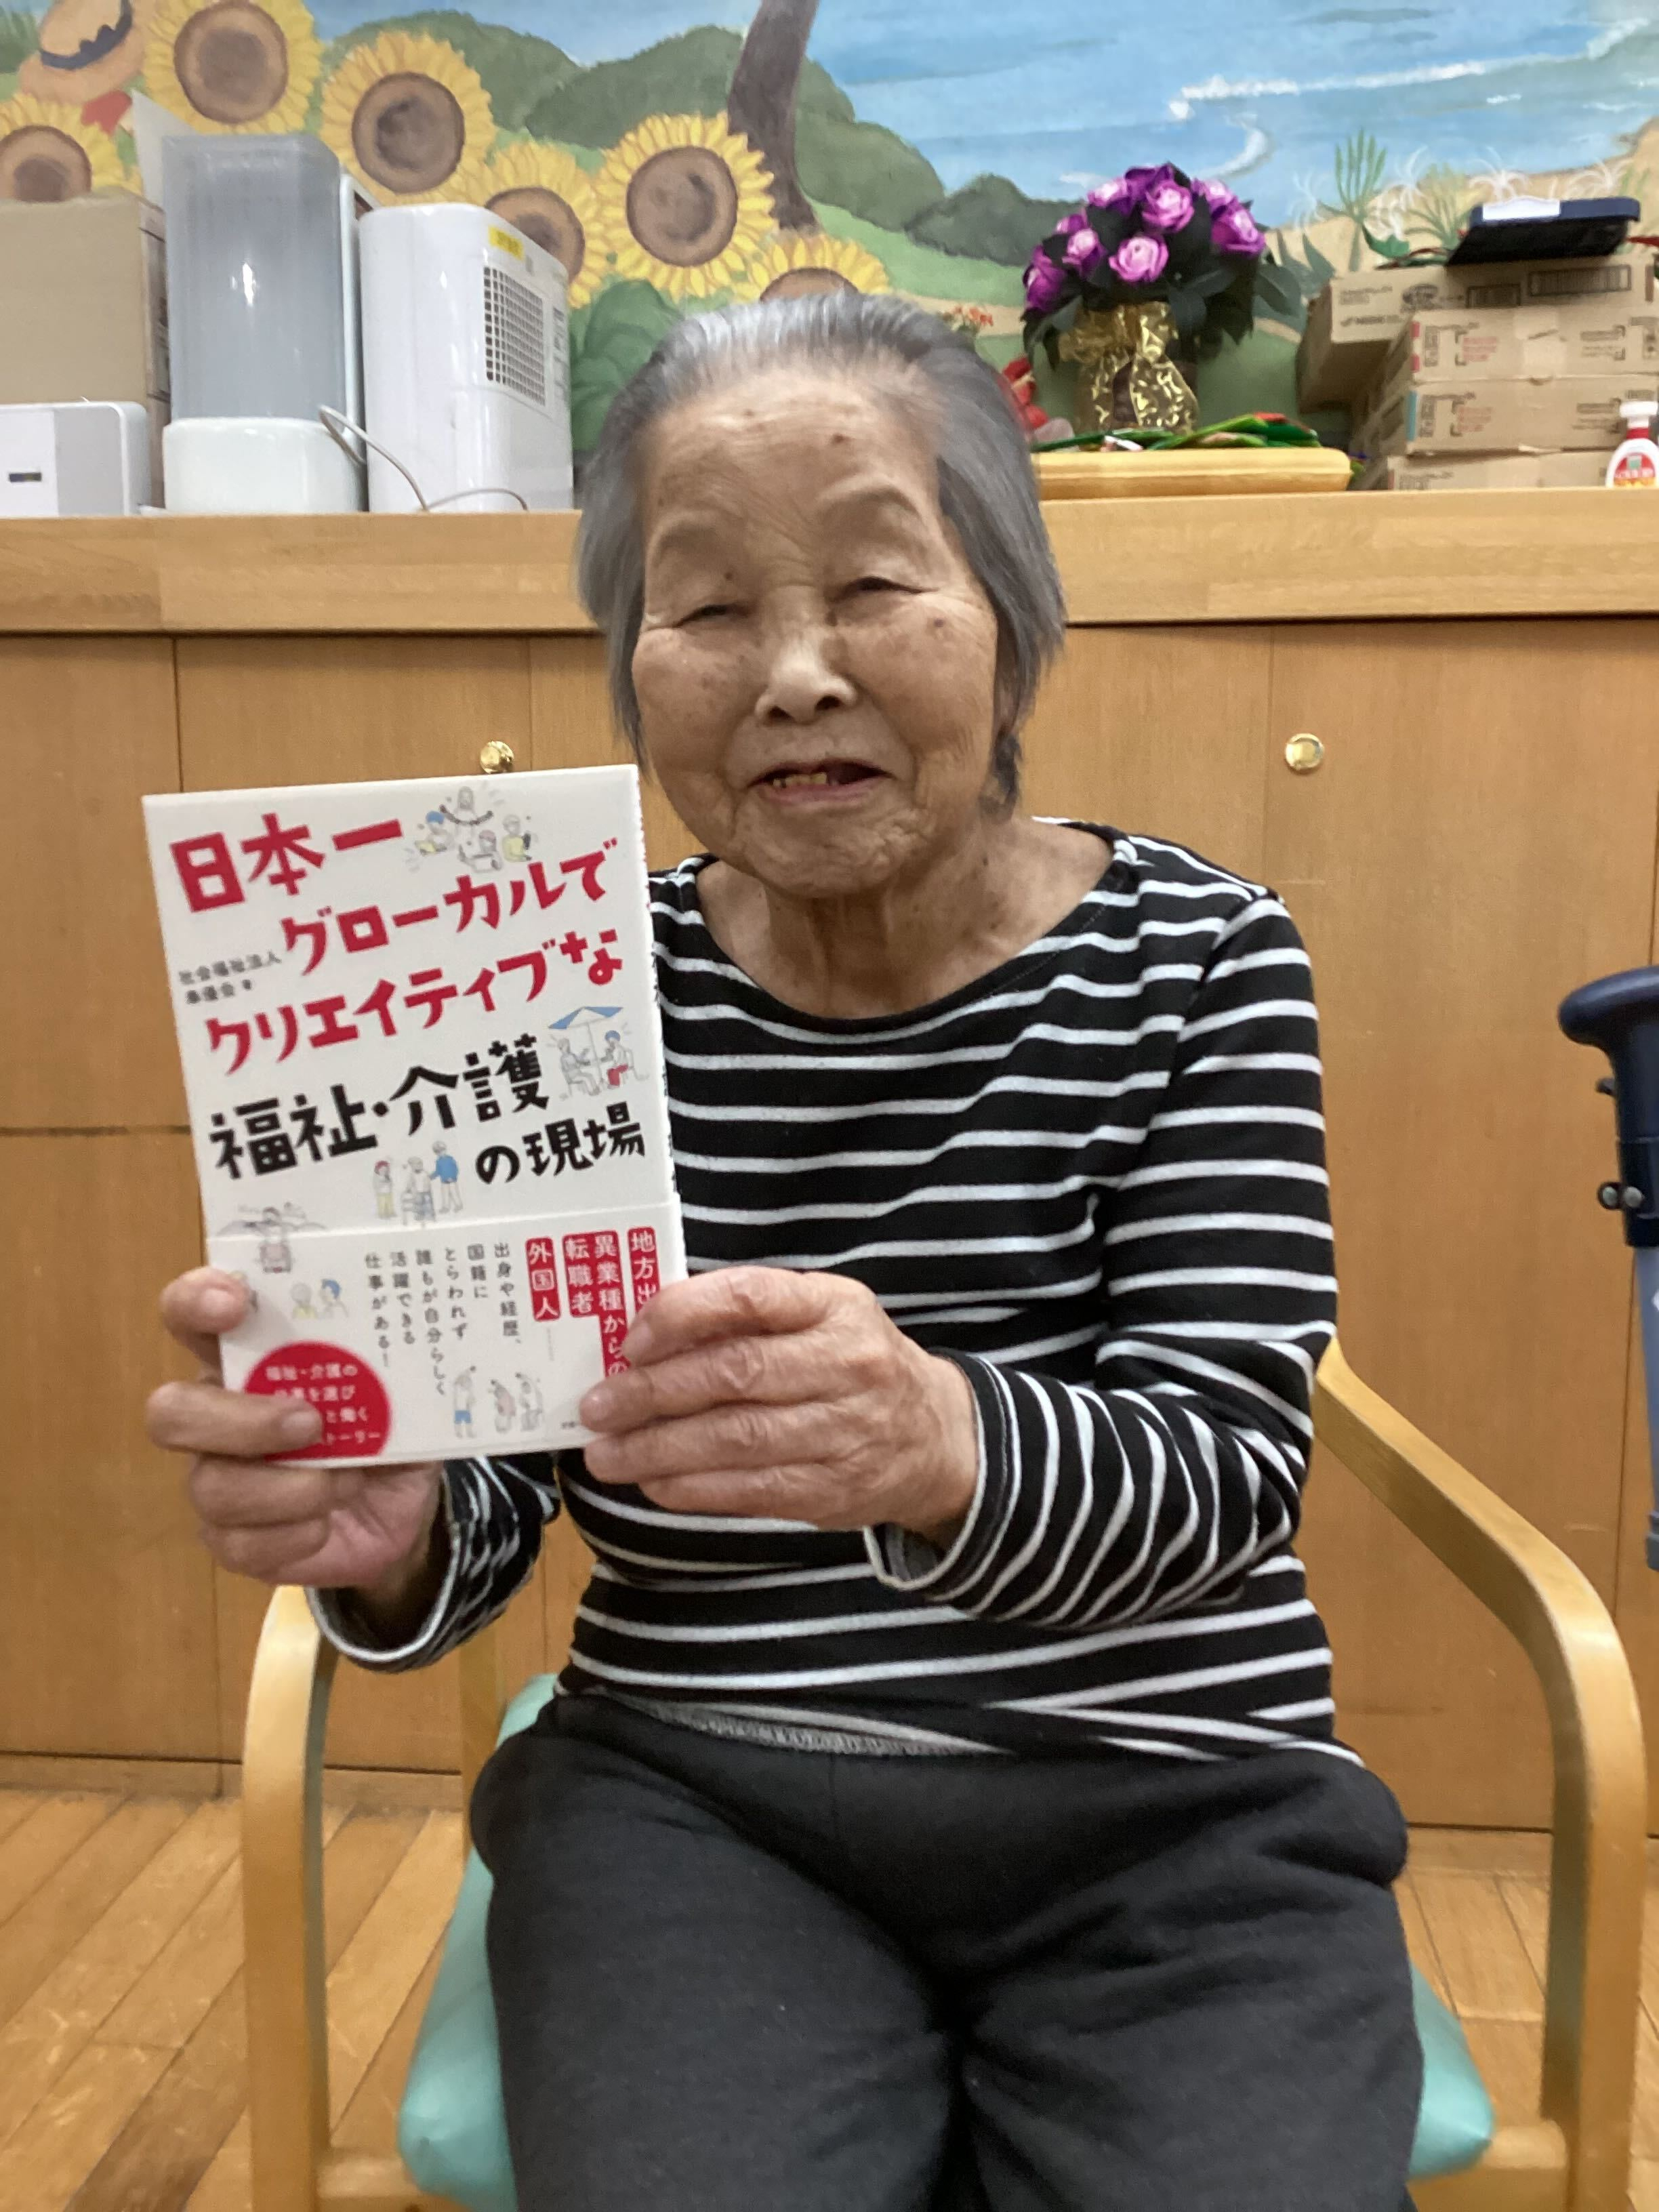 日本一
グローカルで
クリエイティブな
社会福祉法人
奉優会 著
福祉・介護
の現場
地方出
異業種からの
転職者
外国人
出身や経歴、
国籍に
とらわれず
誰もが自分らしく
活躍できる
仕事がある!
福祉・介護の
を選び
と働く
トーリー